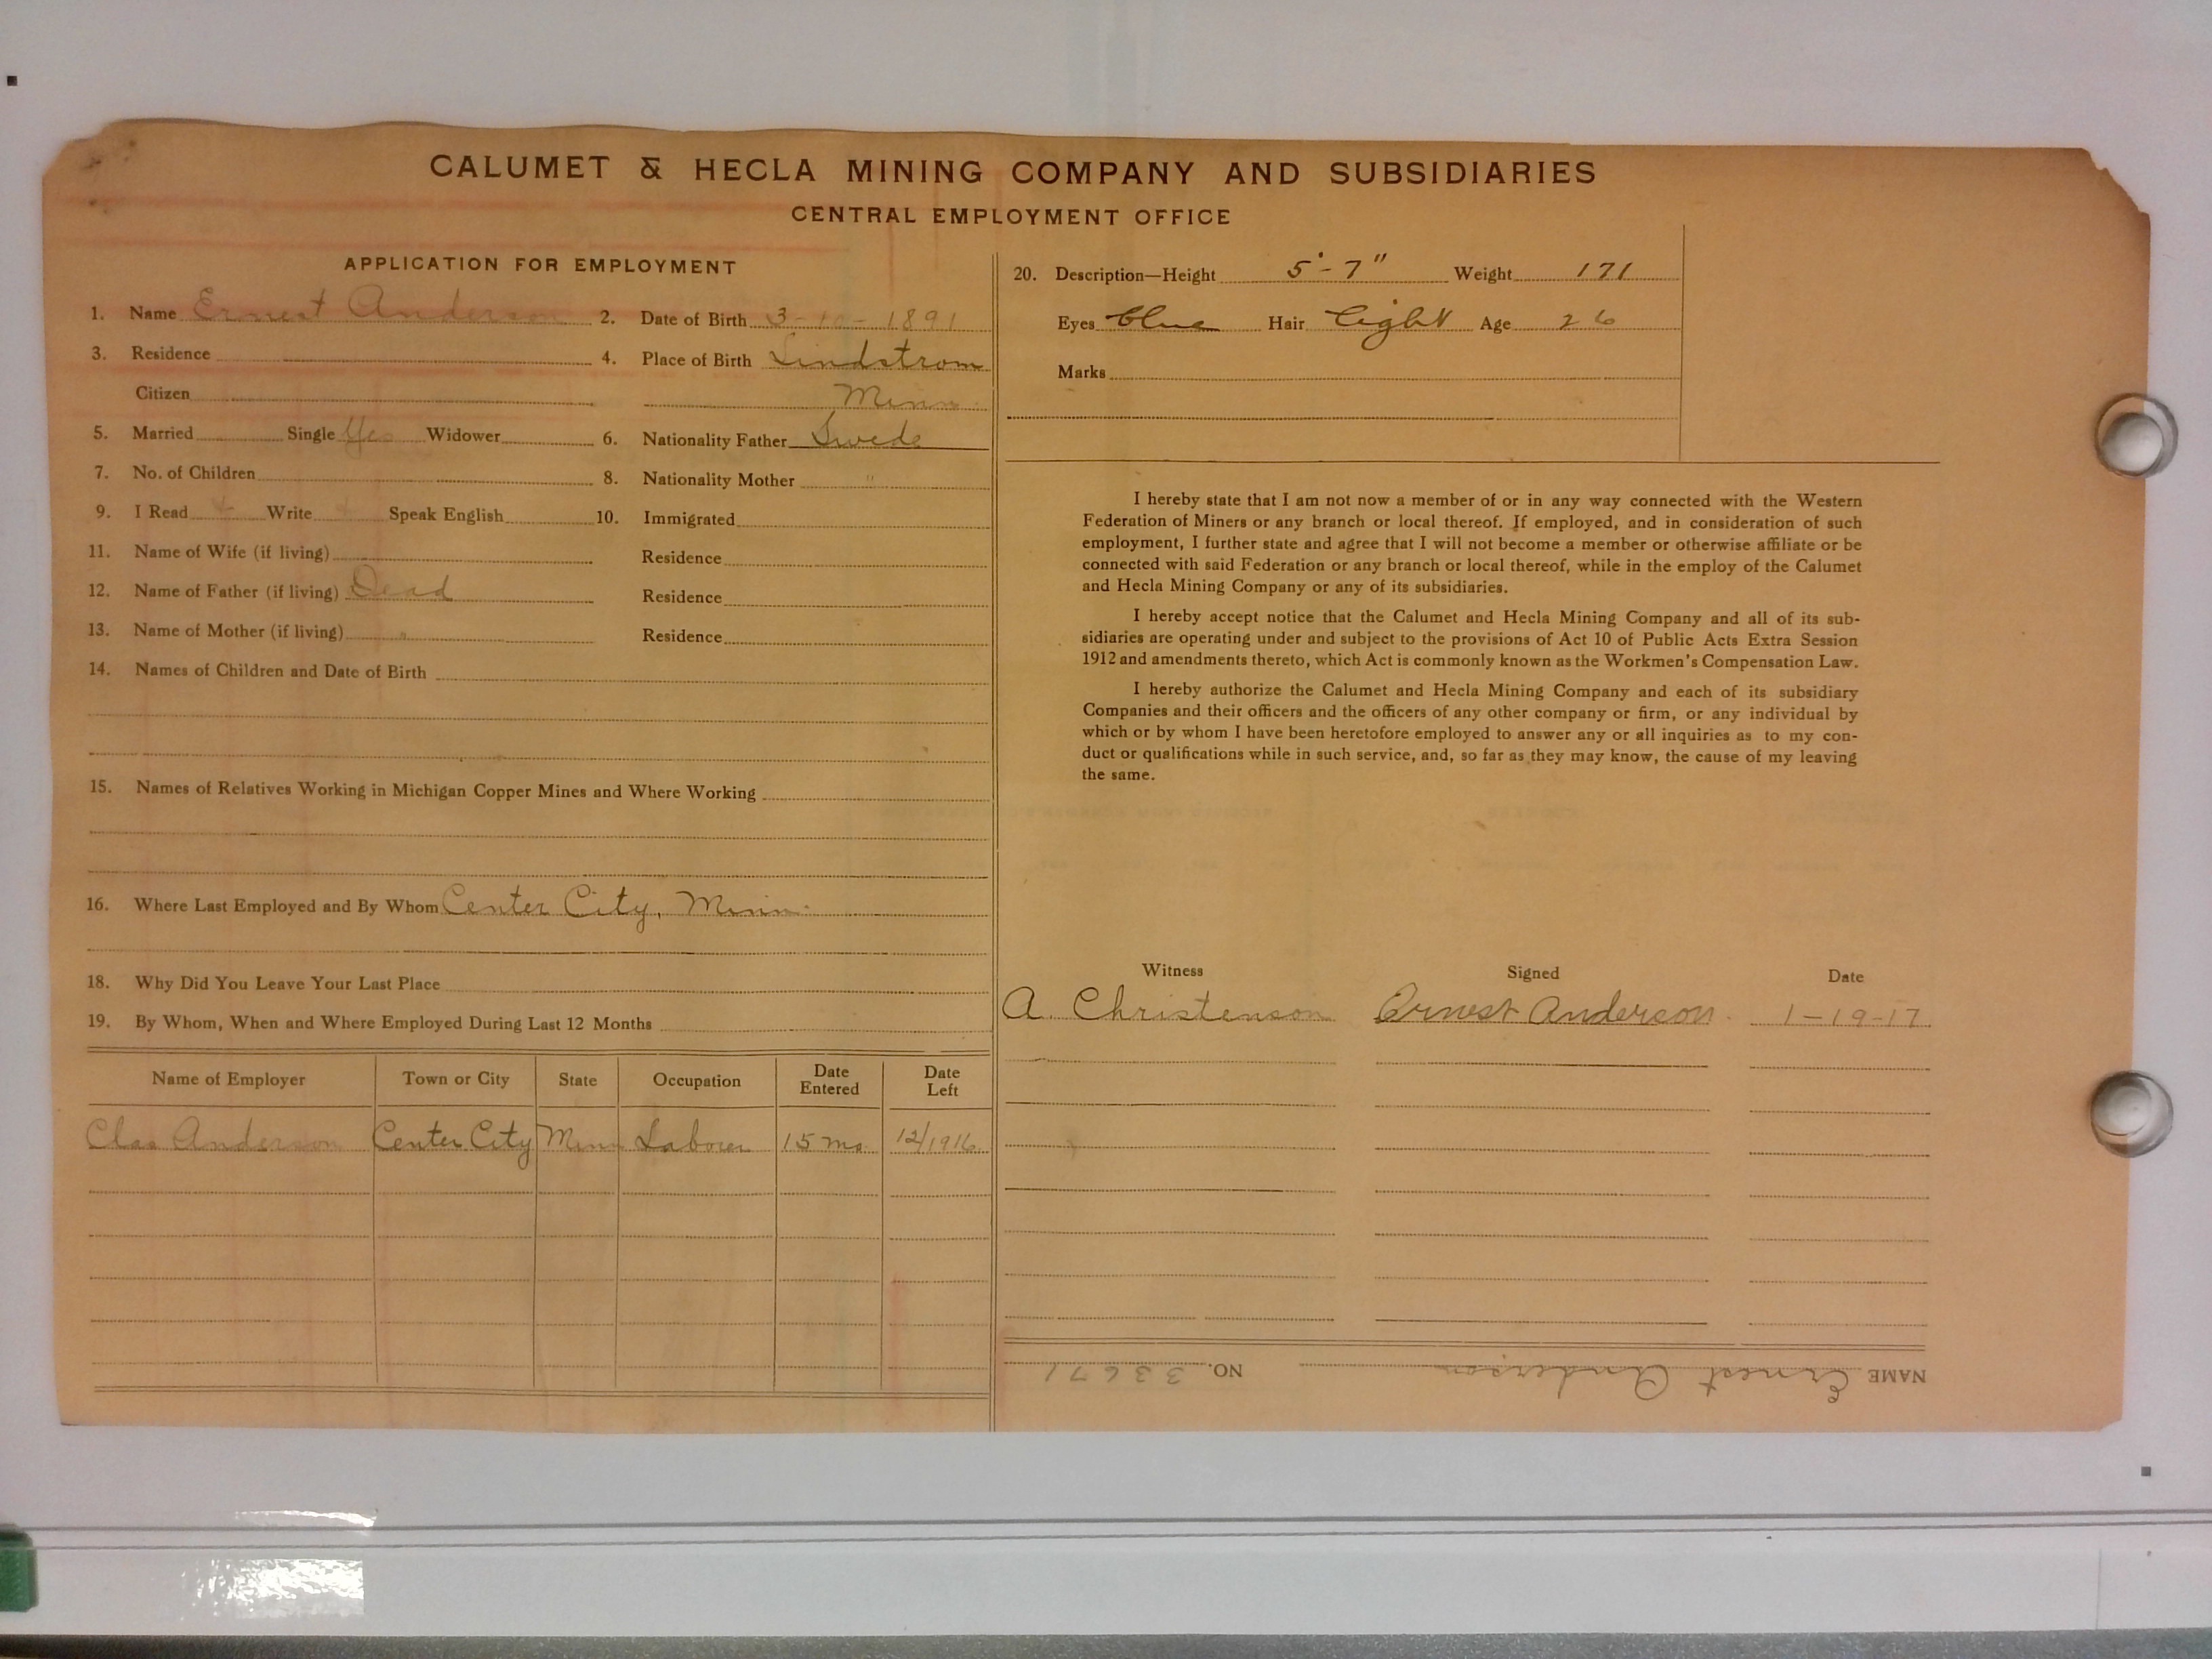 CALUMET & HECLA MINING COMPANY AND SUBSIDIARIES
CENTRAL EMPLOYMENT OFFICE
APPLICATION FOR EMPLOYMENT
1. Name Ernest Anderson 2. Date of Birth 3-10-1891
3. Residence 4. Place of Birth Lindstrom
Citizen Minn
5. Married Single Yes Widower 6. Nationality Father Swede
7. No. of Children 8. Nationality Mother "
9. I Read + Write + Speak English 10. Immigrated
11. Name of Wife (if living) Residence
12. Name of Father (if living) Dead Residence
13. Name of Mother (if living) " Residence
14. Names of Children and Date of Birth
15. Names of Relatives Working in Michigan Copper Mines and Where Working
16. Where Last Employed and By Whom Center City, Minn.
18. Why Did You Leave Your Last Place
19. By Whom, When and Where Employed During Last 12 Months
Name of Employer Town or City State Occupation Date Entered Date Left
Anderson Center City Minn Laborer 15 mo. 12/1916
20. Description—Height 5'-7" Weight 171
Eyes blue Hair light Age 26
Marks
I hereby state that I am not now a member of or in any way connected with the Western
Federation of Miners or any branch or local thereof. If employed, and in consideration of such
employment, I further state and agree that I will not become a member or otherwise affiliate or be
connected with said Federation or any branch or local thereof, while in the employ of the Calumet
and Hecla Mining Company or any of its subsidiaries.
I hereby accept notice that the Calumet and Hecla Mining Company and all of its sub-
sidiaries are operating under and subject to the provisions of Act 10 of Public Acts Extra Session
1912 and amendments thereto, which Act is commonly known as the Workmen's Compensation Law.
I hereby authorize the Calumet and Hecla Mining Company and each of its subsidiary
Companies and their officers and the officers of any other company or firm, or any individual by
which or by whom I have been heretofore employed to answer any or all inquiries as to my con-
duct or qualifications while in such service, and, so far as they may know, the cause of my leaving
the same.
Witness Signed Date
A. Christenson Ernest Anderson. 1-19-17
NAME Ernest Anderson NO. 33671